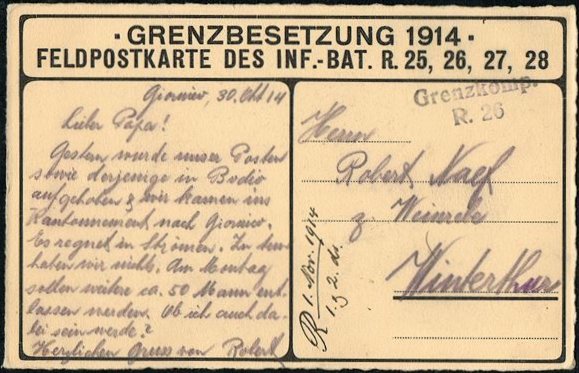 · GRENZBESETZUNG 1914 ·
FELDPOSTKARTE DES INF.-BAT. R. 25, 26, 27, 28
Giornico, 30. Okt 14
Lieber Papa!
Gestern wurde unser Posten
sowie derjenige in Bodio
aufgehoben & wir kamen ins
Kantonnement nach Giornico.
Es regnet in Strömen. Zu tun
haben wir nichts. Am Montag
sollen weitere ca. 50 Mann ent-
lassen werden. Ob ich auch da-
bei sein werde?
Herzlichen Gruss von Robert
Grenzkomp.
R. 26
Herrn
Robert Naef
z. Weinrebe
Winterthur
R 1. Nov. 1914